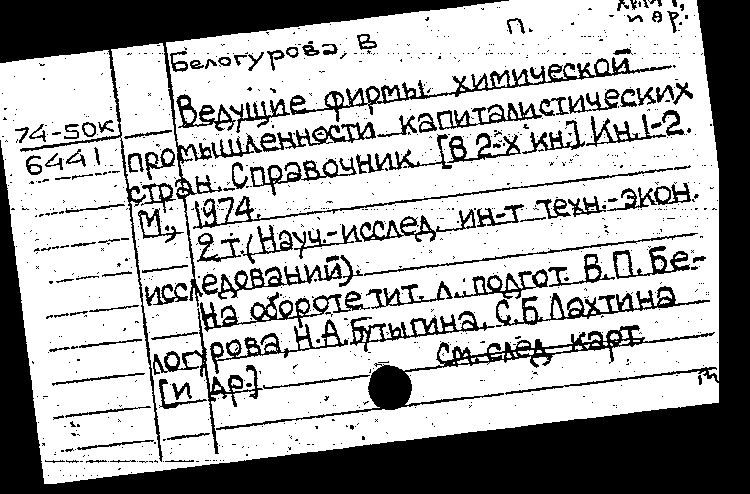 пер.
Белогурова, В П.
Ведущие фирмы химической
74-50к
6441
промышленности капиталистических
стран. Справочник. [В 2-х кн.]. Кн.1-2.
М., 1974.
2 т. (Науч.-исслед. ин-т техн.-экон.
исследований).
На обороте тит. л.: подгот. В.П. Бе-
логурова, Н.А. Бутыгина, С.Б. Лахтина
[и др.]
См. след. карт.